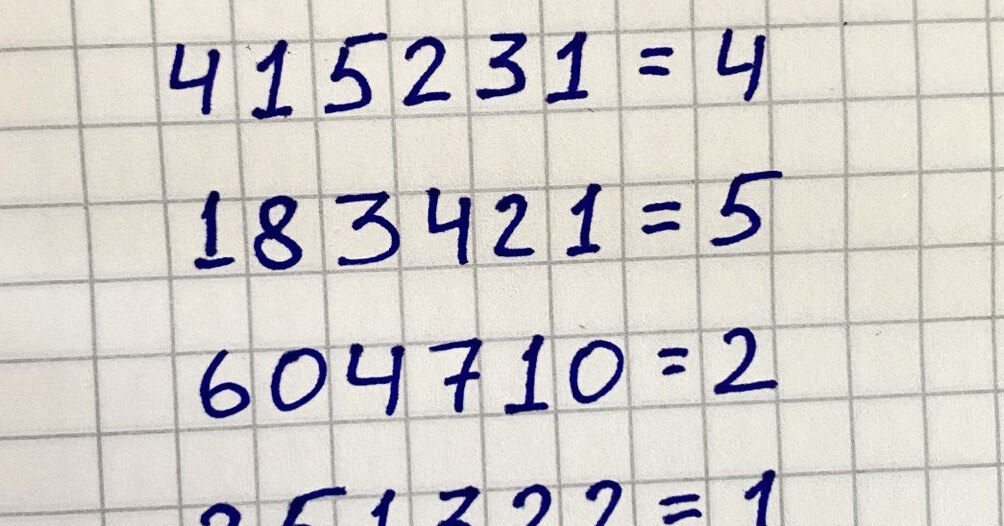 415231 = 4
183421 = 5
604710 = 2